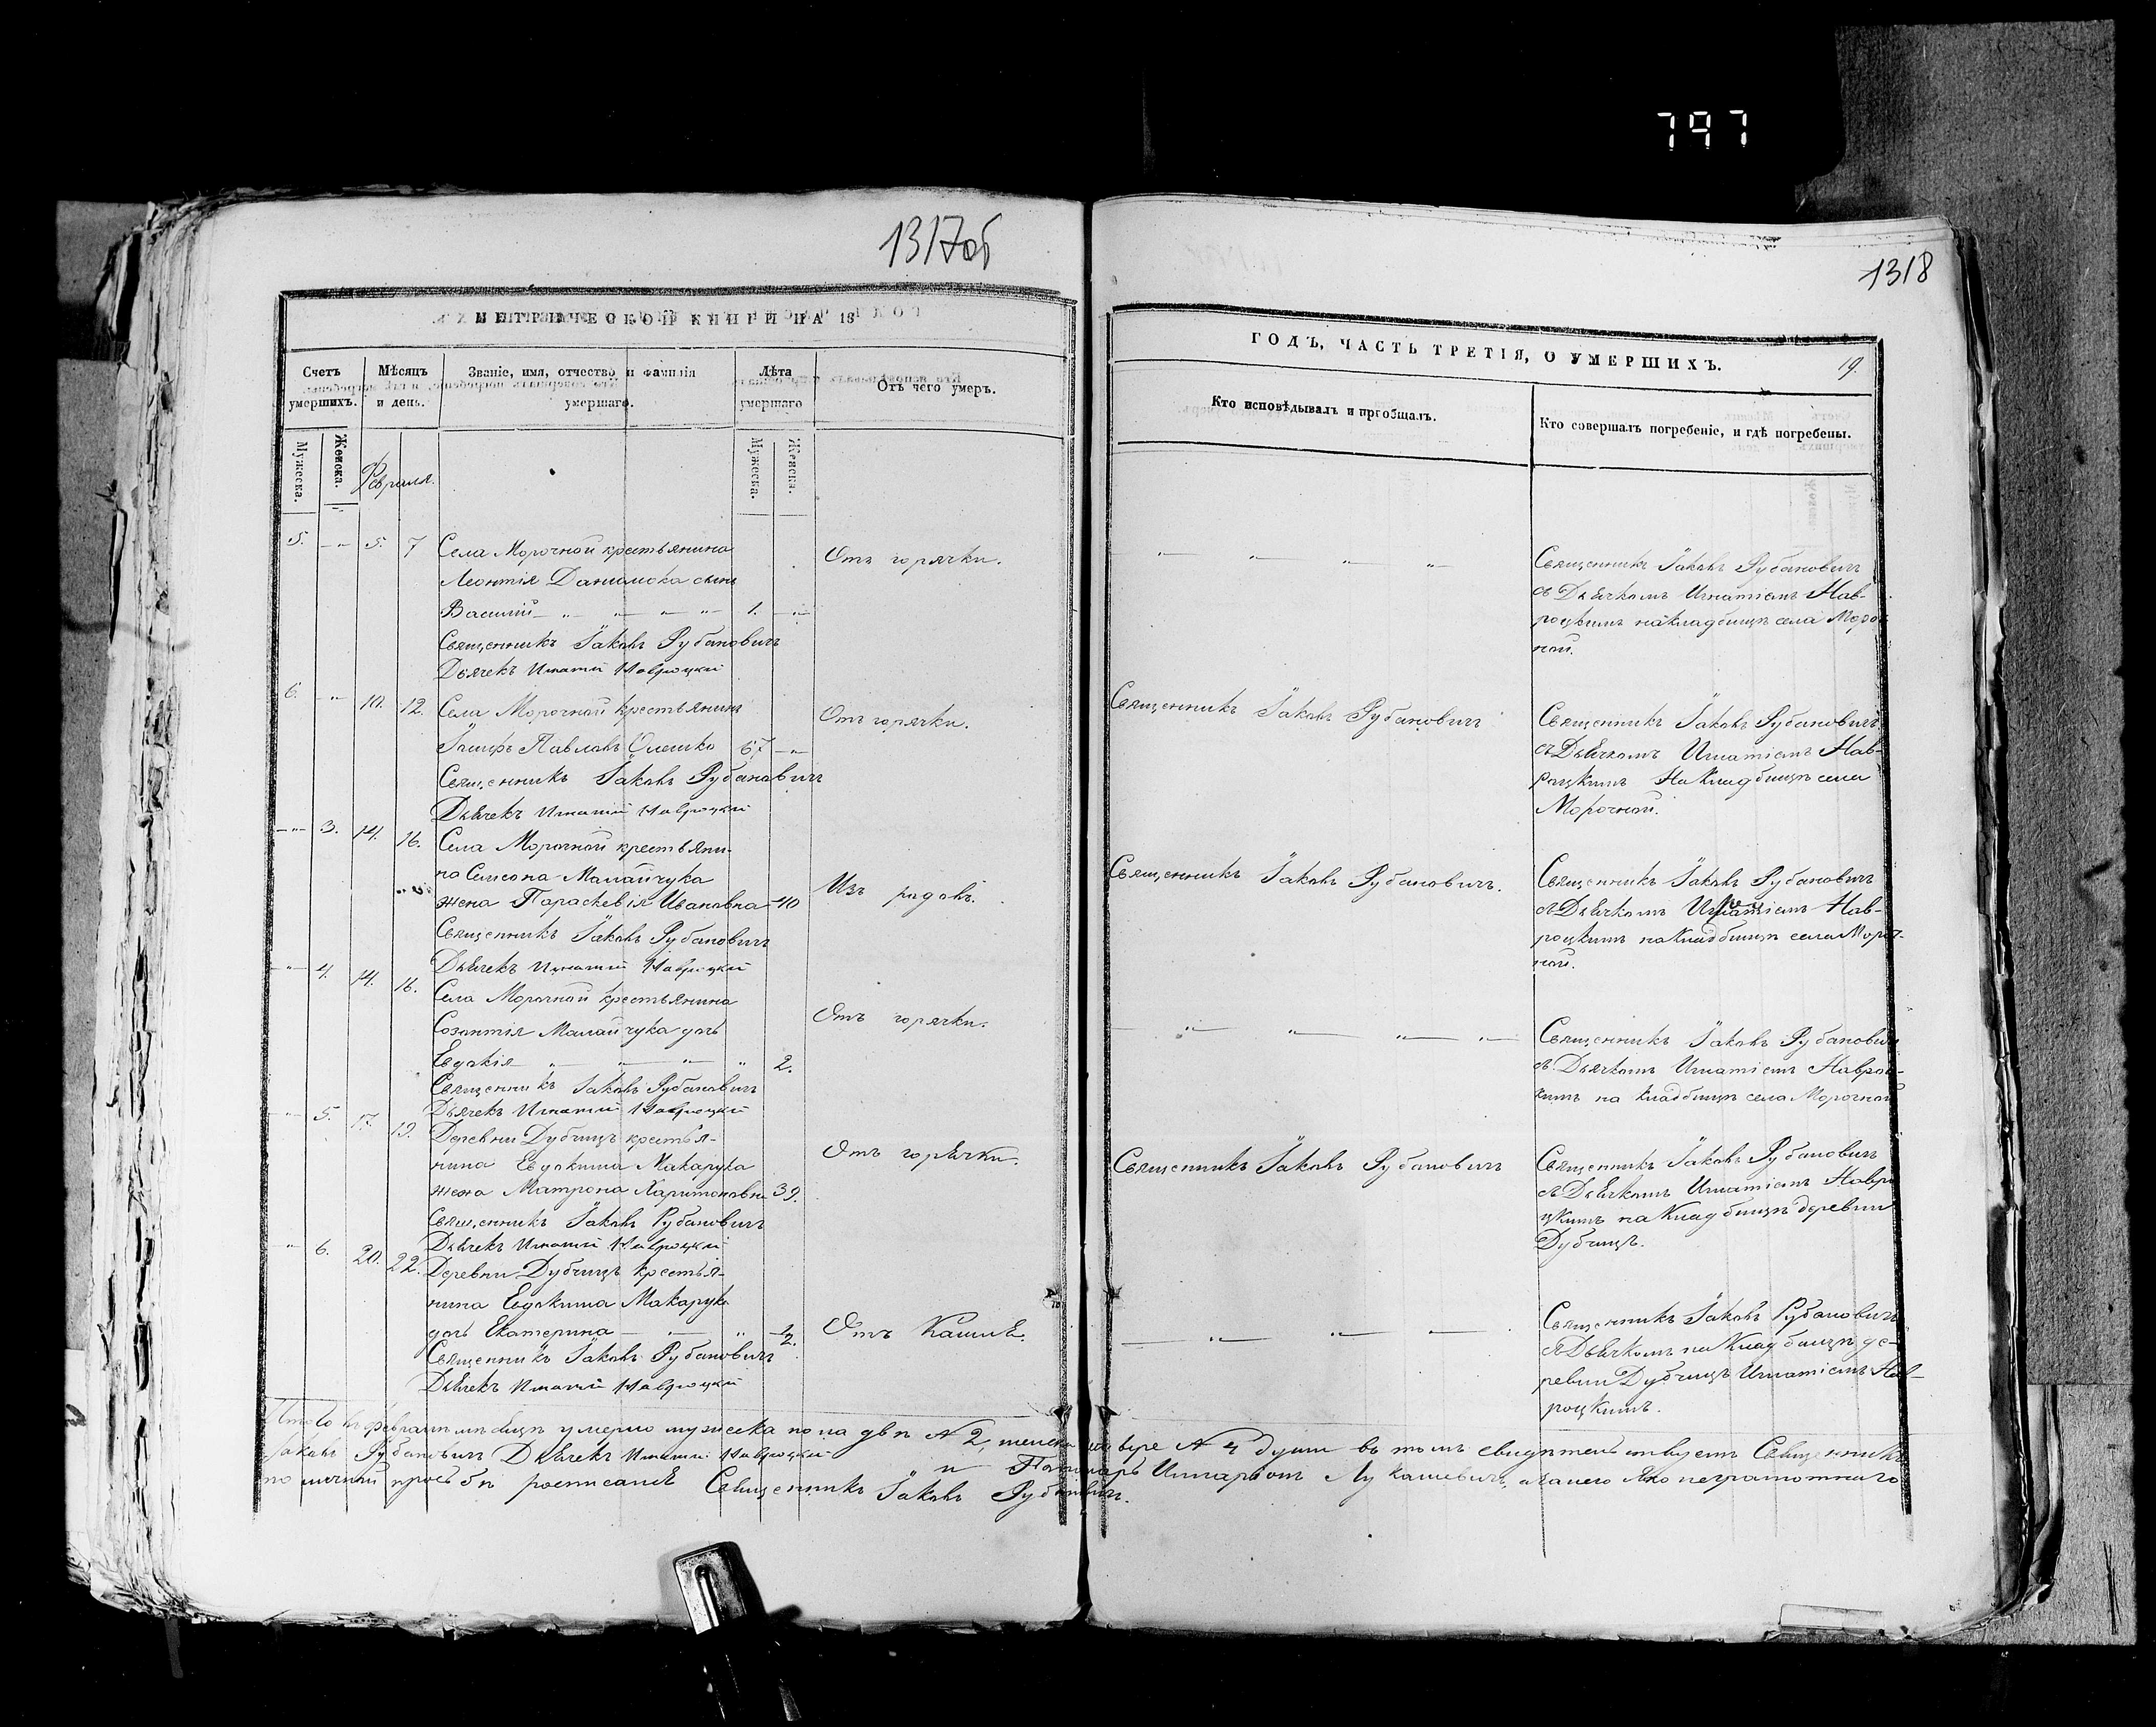 797
1317об
1318
МЕТРИЧЕСКОЙ КНИГИ НА 18
Счетъ умершихъ.
Мѣсяцъ и день.
Званіе, имя, отчество и фамилія умершаго.
Лѣта умершаго
Отъ чего умеръ.
Мужеска.
Женска.
Февраля.
Мужеска.
Женска.
5. 5. 7 Села Морочной крестьянина
Леонтія Данилюка сынъ
Василій 1.
Отъ горячки.
Священникъ Іаковъ Рубановичъ
Дьячекъ Игнатій Навроцкій
6. 10. 12. Села Морочной крестьянинъ
Іосифъ Павловъ Олешко 67
Отъ горячки.
Священникъ Іаковъ Рубановичъ
Дьячекъ Игнатій Навроцкій
3. 14. 16. Села Морочной крестьяни-
на Симеона Малайчука
жена Параскевія Ивановна 40
Изъ родовъ.
Священникъ Іаковъ Рубановичъ
Дьячекъ Игнатій Навроцкій
4. 14. 16. Села Морочной крестьянина
Созонтія Малайчука дочь
Евдокія 2.
Отъ горячки.
Священникъ Іаковъ Рубановичъ
Дьячекъ Игнатій Навроцкій
5. 17. 19. Деревни Дубчицъ крестья-
нина Евдокима Макарука
жена Матрона Харитоновна 39.
Отъ горячки.
Священникъ Іаковъ Рубановичъ
Дьячекъ Игнатій Навроцкій
6. 20. 22. Деревни Дубчицъ крестья-
нина Евдокима Макарука
дочь Екатерина
Отъ Кашлѣ.
Священникъ Іаковъ Рубановичъ
Дьячекъ Игнатій Навроцкій
ГОДЪ, ЧАСТЬ ТРЕТІЯ, О УМЕРШИХЪ.
19.
Кто исповѣдывалъ и пріобщалъ.
Кто совершалъ погребеніе, и гдѣ погребены.
Священникъ Іаковъ Рубановичъ
съ Дьячкомъ Игнатіемъ Нав-
роцкимъ на кладбищѣ села Мороч
ной.
Священникъ Іаковъ Рубановичъ
Священникъ Іаковъ Рубановичъ
съ Дьячкомъ Игнатіемъ Нав-
роцкимъ На Кладбищѣ села
Морочной.
Священникъ Іаковъ Рубановичъ.
Священникъ Іаковъ Рубановичъ
съ Дьячкомъ Игнатіемъ Нав-
роцкимъ на кладбищѣ села Мороч-
ной.
Священникъ Іаковъ Рубановичъ
съ Дьячкомъ Игнатіемъ Навроц-
кимъ на кладбищѣ села Морочной
Священникъ Іаковъ Рубановичъ
Священникъ Іаковъ Рубановичъ
съ Дьячкомъ Игнатіемъ Навро
цкимъ на Кладбищѣ деревни
Дубчицъ.
Священникъ Іаковъ Рубановичъ
съ Дьячкомъ на Кладбищѣ де-
ревни Дубчицъ Игнатіемъ Нав-
роцкимъ.
Итого въ февралѣ мѣсяцѣ умерло мужеска пола двѣ № 2, женска четыре № 4 души въ томъ свидѣтельствуемъ Священникъ
Іаковъ Рубановичъ Дьячекъ Игнатій Навроцкій
и Пономарь Лукашевичъ, а за него яко неграмотнаго
по личной прозьбѣ росписался Священникъ Іаковъ Рубановичъ.